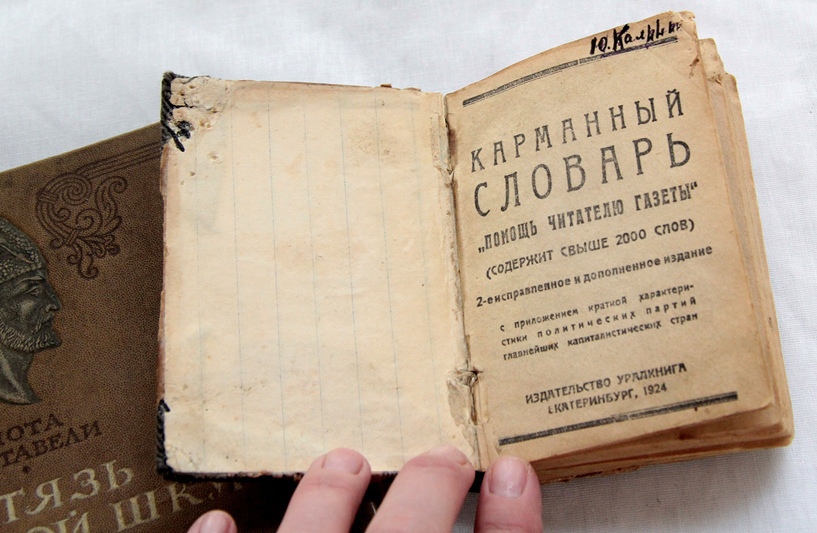 Ю. Калинин
КАРМАННЫЙ
СЛОВАРЬ
„ПОМОЩЬ ЧИТАТЕЛЮ ГАЗЕТЫ“
(СОДЕРЖИТ СВЫШЕ 2000 СЛОВ)
2-е исправленное и дополненное издание
с приложением краткой характери-
стики политических партий
главнейших капиталистических стран
ИЗДАТЕЛЬСТВО УРАЛКНИГА
ЕКАТЕРИНБУРГ, 1924
ОТА
ТАВЕЛИ
ТЯЗЬ
ОЙ ШК